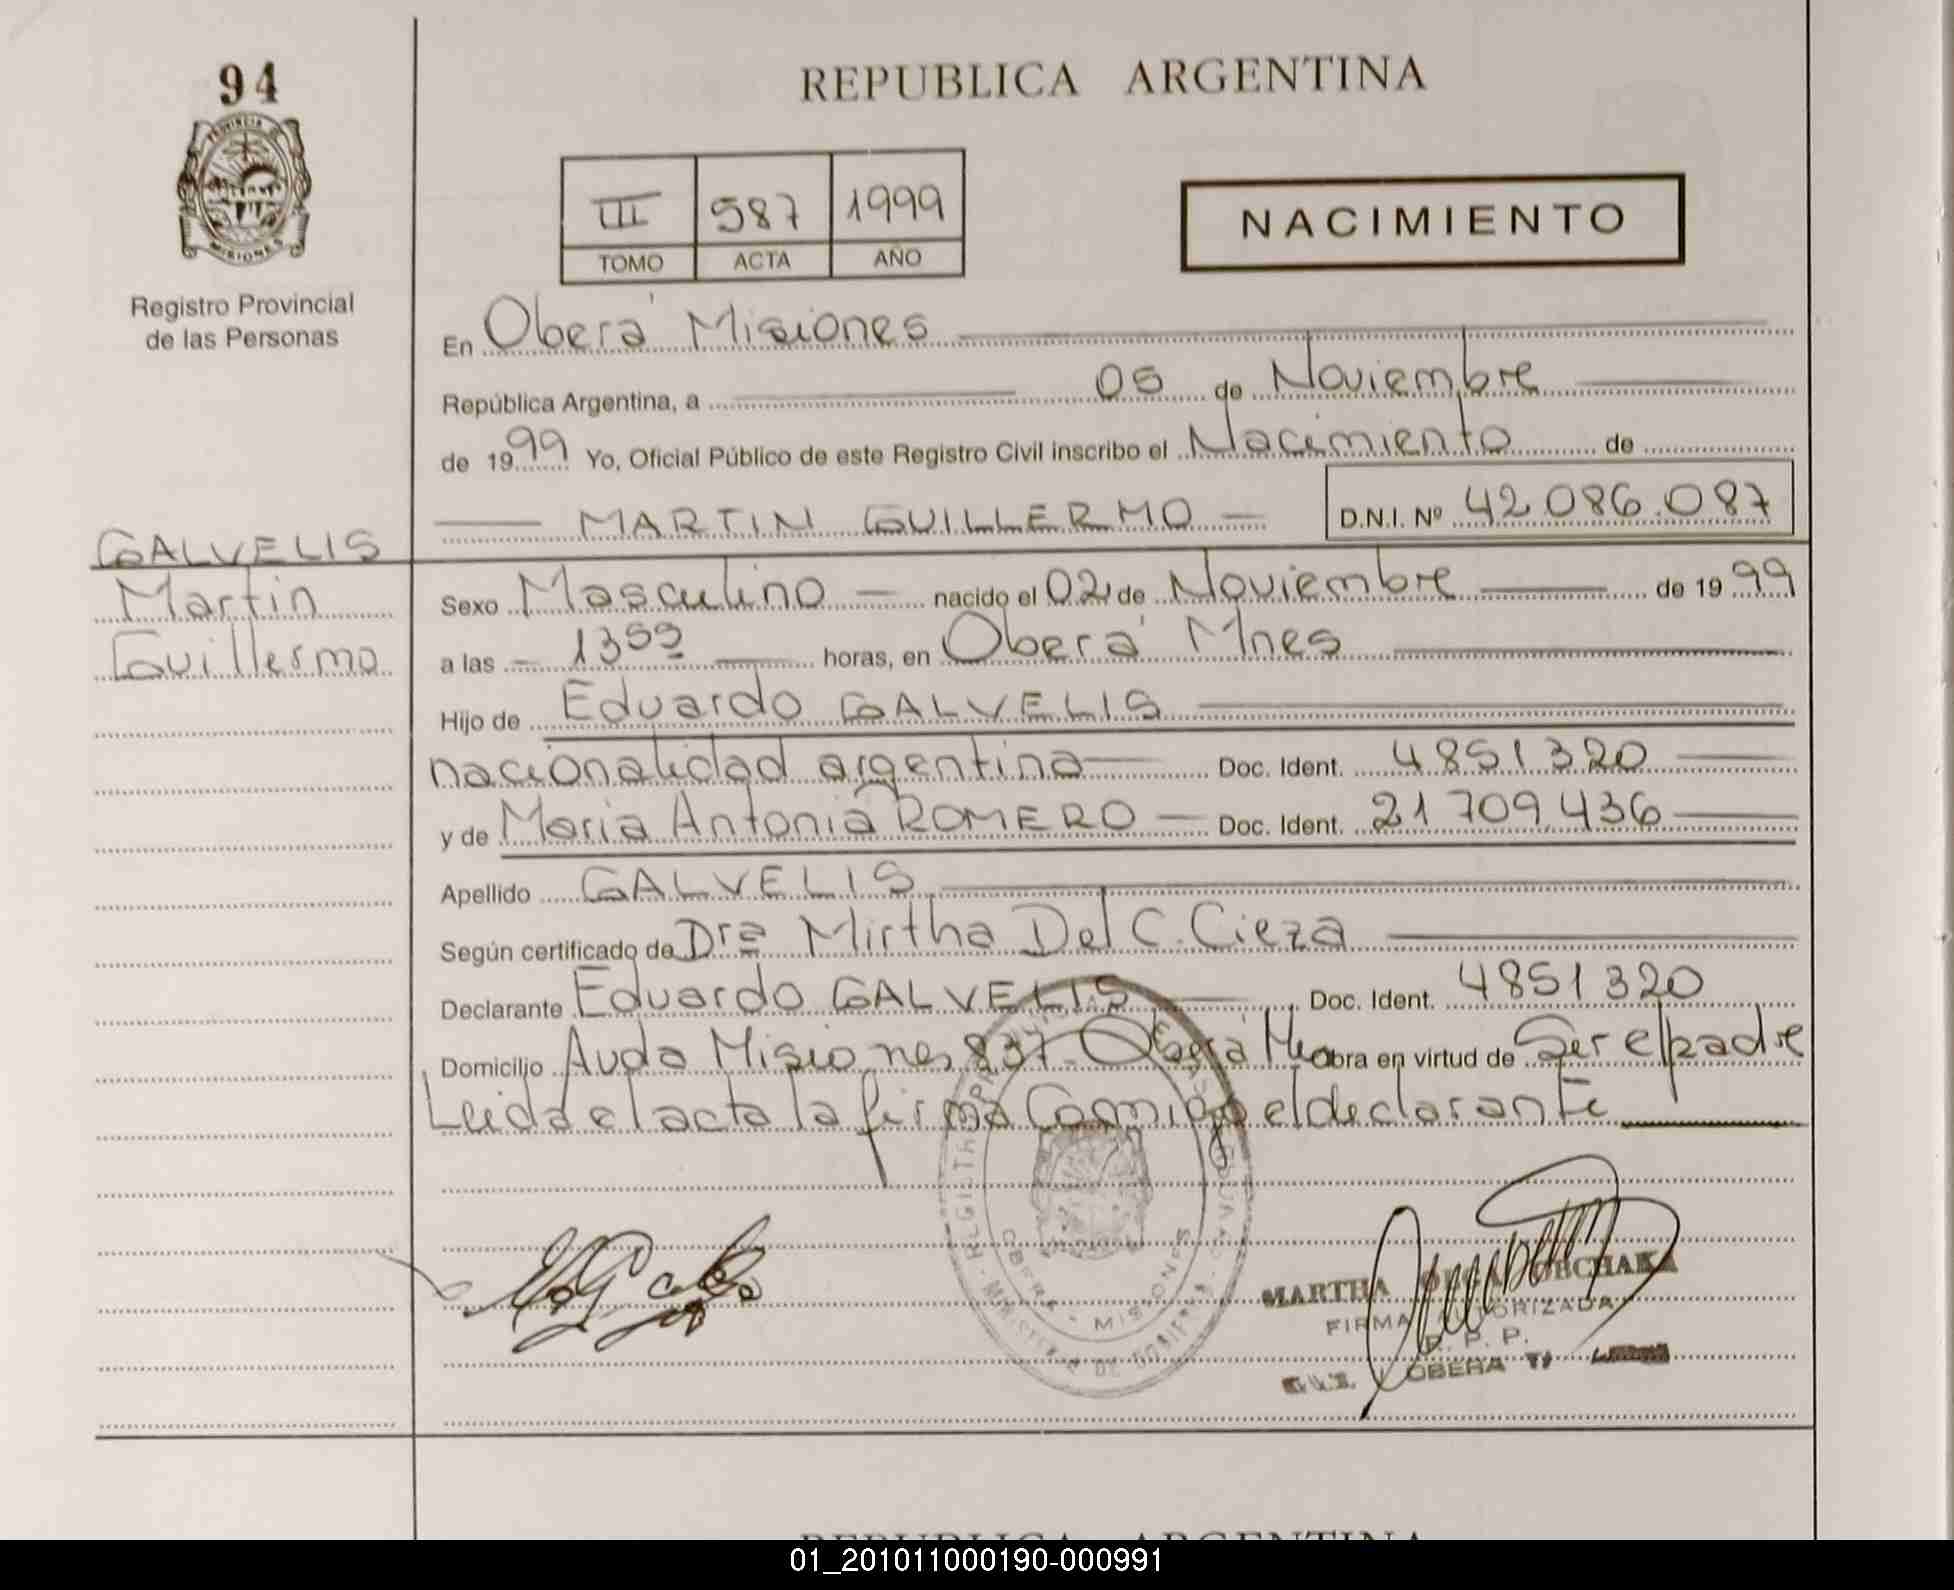 94
REPUBLICA ARGENTINA
PROVINCIA DE
MISIONES
III 587 1999
TOMO ACTA AÑO
NACIMIENTO
Registro Provincial
de las Personas
En Oberá Misiones
República Argentina, a 05 de Noviembre
de 1999 Yo, Oficial Público de este Registro Civil inscribo el Nacimiento de
MARTIN GUILLERMO D.N.I. Nº 42.086.087
GALVELIS
Martin
Guillermo
Sexo Masculino nacido el 02 de Noviembre de 1999
a las 13 horas, en Oberá Mnes
Hijo de Eduardo GALVELIS
nacionalidad argentina Doc. Ident. 4851320
y de Maria Antonia ROMERO Doc. Ident. 21709436
Apellido GALVELIS
Según certificado de Dra Mirtha Del C. Cieza
Declarante Eduardo GALVELIS Doc. Ident. 4851320
Domicilio Avda Misiones 837 - Oberá Obra en virtud de Ser el padre
Leida el acta la firma Conmigo el declarante
OBERA - MISIONES
MARTHA OLGA
FIRMA AUTORIZADA
R. P. P.
OBERA
01_201011000190-000991